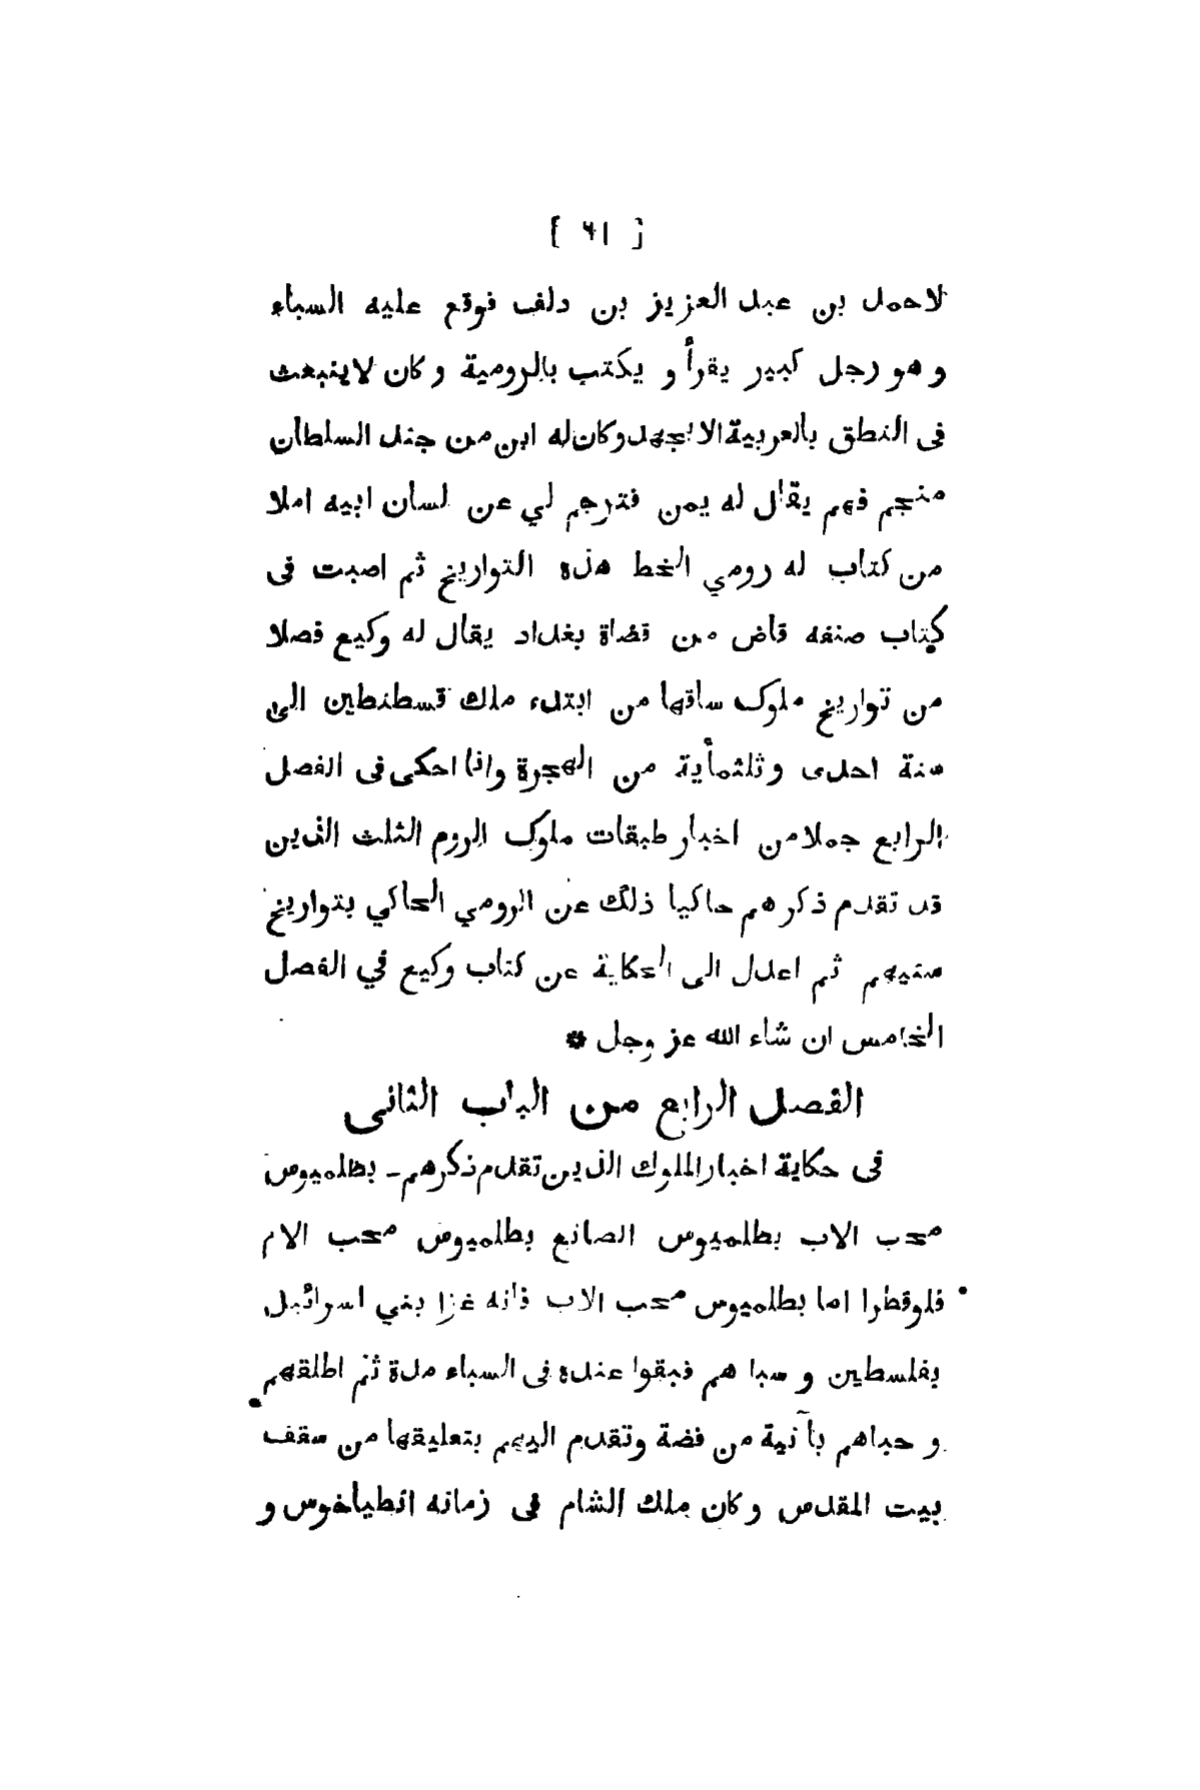 [ ٦١ ]
لاحمد بن عبد العزيز بن دلف فوقع عليه السباء
و هو رجل كبير يقرأ و يكتب بالرومية و كان لاينبعث
فى النطق بالعربية الا بجهد وكان له ابن من جند السلطان
منجم فهم يقال له يمن فترجم لي عن لسان ابيه املا
من كتاب له رومي الخط هذه التواريخ ثم اصبت فى
كتاب صنفه قاض من قضاة بغداد يقال له وكيع فصلا
من تواريخ ملوك ساقها من ابتدء ملك قسطنطين الى
سنة احدى و ثلثمأية من الهجرة وانا احكى فى الفصل
الرابع جملا من اخبار طبقات ملوك الروم الثلث الذين
قد تقدم ذكر هم حاكيا ذلك عن الرومي الحاكي بتواريخ
سنيهم ثم اعدل الى الحكاية عن كتاب وكيع في الفصل
الخامس ان شاء الله عز وجل *
الفصل الرابع من الباب الثانى
فى حكاية اخبار الملوك الذين تقدم ذكرهم ـ بطلميوس
محب الاب بطلميوس الصانع بطلميوس محب الام
فلوقطرا اما بطلميوس محب الاب فانه غزا بني اسرائيل
بفلسطين و سبا هم فبقوا عنده فى السباء مدة ثم اطلقهم
و حباهم بآ نية من فضة وتقدم اليهم بتعليقها من سقف
بيت المقدس و كان ملك الشام فى زمانه انطياخوس و